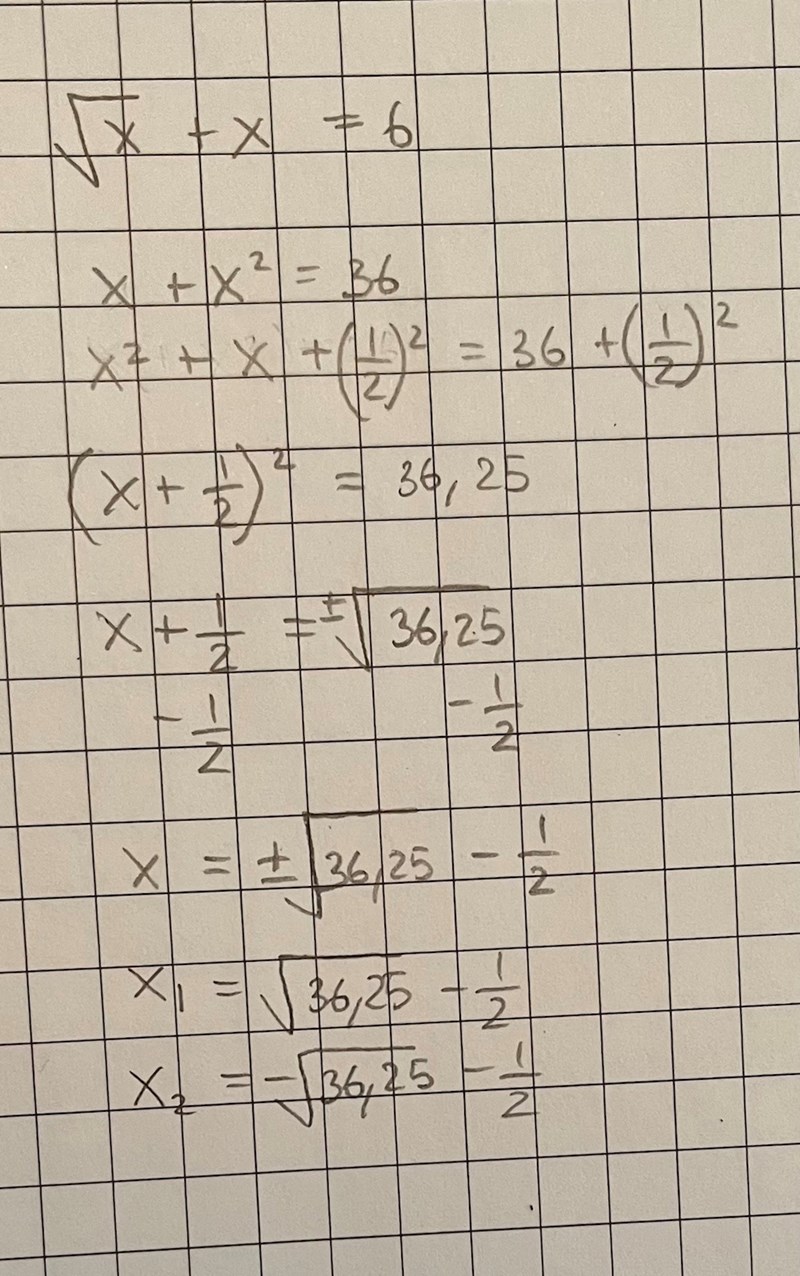 √x + x = 6
x + x² = 36
x² + x + (1/2)² = 36 + (1/2)²
(x + 1/2)² = 36,25
x + 1/2 = ±√36,25
- 1/2 - 1/2
x = ±√36,25 - 1/2
x₁ = √36,25 - 1/2
x₂ = -√36,25 - 1/2